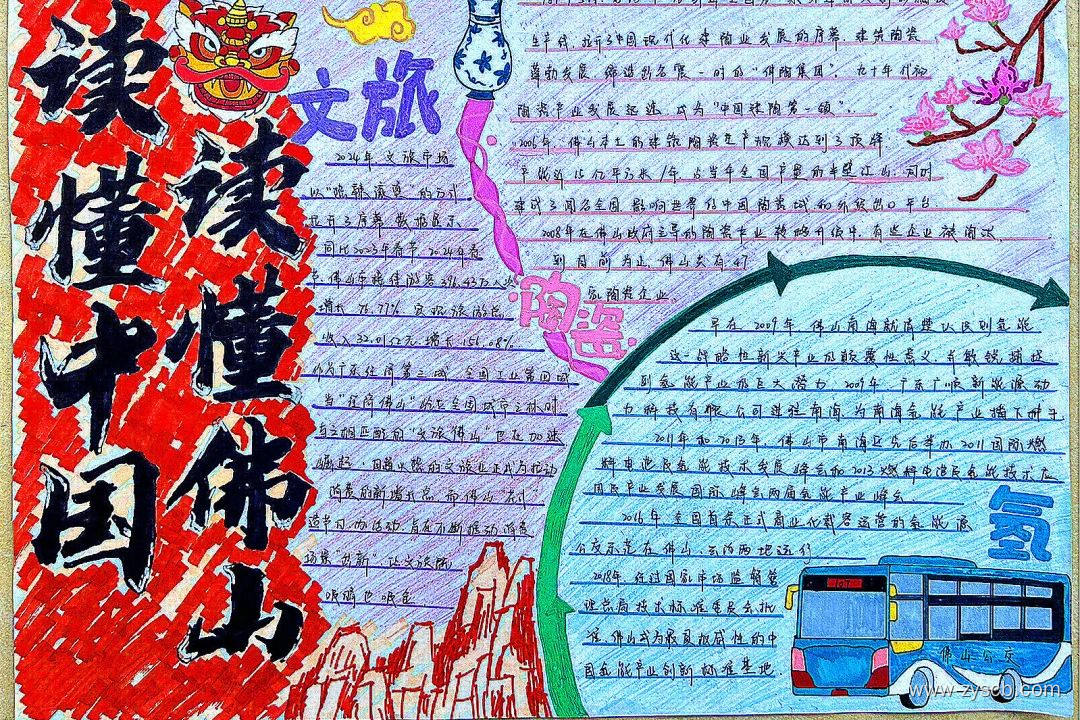 读懂中国
读懂佛山
文旅
2024年文旅市场
以“跳转滚烫”的方式
拉开了序幕 数据显示
同比2023年春节 2024年春
节佛山乐接待游客396.43万人次
增长 76.77% 实现旅游总
收入32.01亿元 增长156.08%
作为广东经济第三城 全国工业第四城
当“
佛山”屹立全国城市之林时
与之相匹配的“文旅佛山”也在加速
崛起 因着火热的文旅业正成为拉动
消费的新增长点 而佛山在
造节日 办活动 旨在不断推动消费
场景“焕新” 让文旅既
吸睛也吸金
生产线 拓了中国现代化建陶业发展的序幕 建筑陶瓷
蓬勃发展 缔造出名震一时的“佛陶集团”。九十年代初
陶瓷产业发展迅速 成为“中国建陶第一镇”。
2006年 佛山本土的建筑陶瓷生产规模达到了顶峰
产能近15亿平方米/年 占当年全国产量的半壁江山 同时
建成了闻名全国 影响世界的中国陶瓷城和
出口平台
2008年在佛山政府主导的陶瓷产业转移升级中 有些企业被淘汰
到目前为止 佛山共有47
家陶瓷企业
陶瓷
早在2009年 佛山南海就清楚认识到氢能
这一战略性新兴产业的颠覆性意义 并敏锐捕捉
到氢能产业的巨大潜力 2009年 广东广顺新能源动
力科技有限公司进驻南海 为南海氢能产业播下种子
2011年和2013年 佛山市南海区先后举办2011国际燃
料电池及氢能技术发展峰会和2013燃料电池及氢能技术应
用及产业发展国际峰会两届氢能产业峰会
2016年 全国首条正式商业化载客运营的氢能源
公交示范在佛山 云浮两地运行
2018年 在过国家市场监督管
理总局技术标准委员会批
准 佛山成为最具权威性的中
国氢能产业创新 标准基地.
氢
佛山公交
www.zyscbl.com